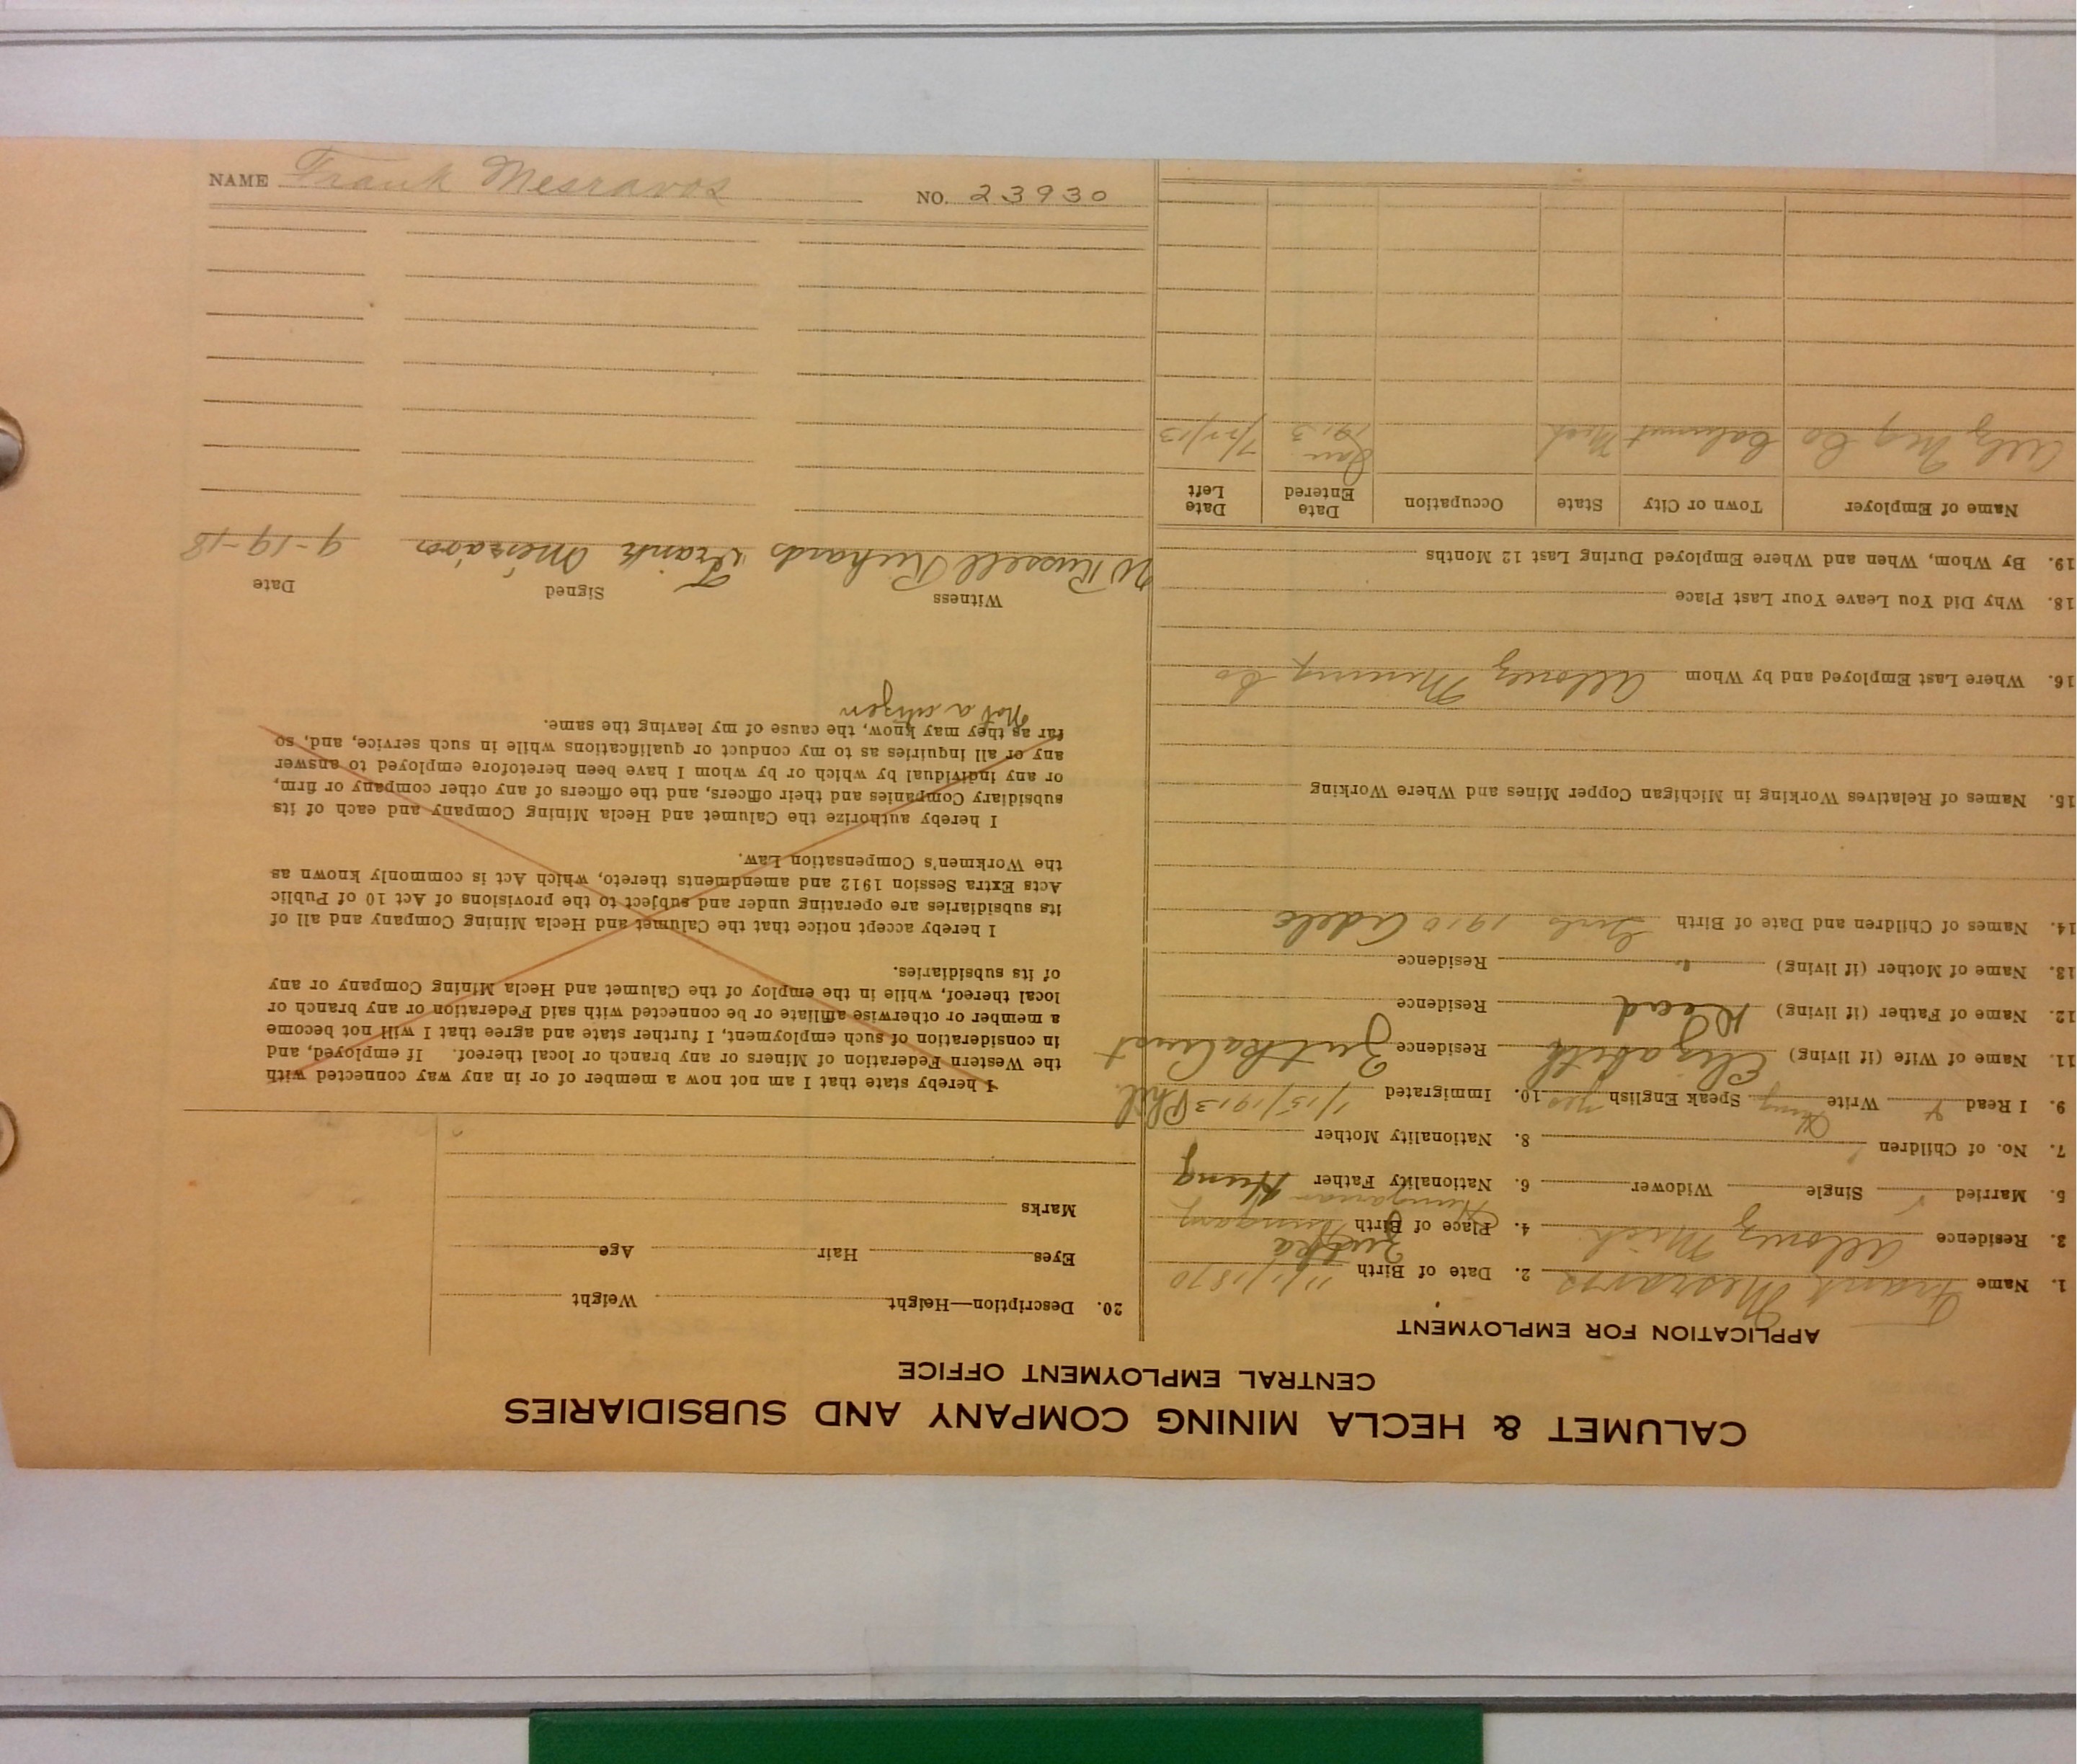 NAME Frank Mesravos NO. 23930
CALUMET & HECLA MINING COMPANY AND SUBSIDIARIES
CENTRAL EMPLOYMENT OFFICE
APPLICATION FOR EMPLOYMENT
1. Name Frank Mesravos 2. Date of Birth 11/1/1870
3. Residence Allouez Mich 4. Place of Birth Hungary
5. Married Single Widower 6. Nationality Father Hung
Hungarian
7. No. of Children 8. Nationality Mother
9. I Read Write Hung Speak English yes 10. Immigrated 1/15/1913 Phil.
11. Name of Wife (if living) Elizabeth Residence
12. Name of Father (if living) Dead Residence
13. Name of Mother (if living) Residence
14. Names of Children and Date of Birth 1910
15. Names of Relatives Working in Michigan Copper Mines and Where Working
16. Where Last Employed and by Whom Allouez Mining Co
18. Why Did You Leave Your Last Place
19. By Whom, When and Where Employed During Last 12 Months
Name of Employer Town or City State Occupation Date Entered Date Left
Mng Co Calumet Mich Jan 1913
20. Description—Height Weight
Eyes Hair Age
Marks
I hereby state that I am not now a member of or in any way connected with
the Western Federation of Miners or any branch or local thereof. If employed, and
in consideration of such employment, I further state and agree that I will not become
a member or otherwise affiliate or be connected with said Federation or any branch or
local thereof, while in the employ of the Calumet and Hecla Mining Company or any
of its subsidiaries.
I hereby accept notice that the Calumet and Hecla Mining Company and all of
its subsidiaries are operating under and subject to the provisions of Act 10 of Public
Acts Extra Session 1912 and amendments thereto, which Act is commonly known as
the Workmen's Compensation Law.
I hereby authorize the Calumet and Hecla Mining Company and each of its
subsidiary Companies and their officers, and the officers of any other company or firm,
or any individual by which or by whom I have been heretofore employed to answer
any or all inquiries as to my conduct or qualifications while in such service, and, so
far as they may know, the cause of my leaving the same.
Not a citizen
Witness Signed Date
W Russell Richards Frank Mesravos 9-19-18